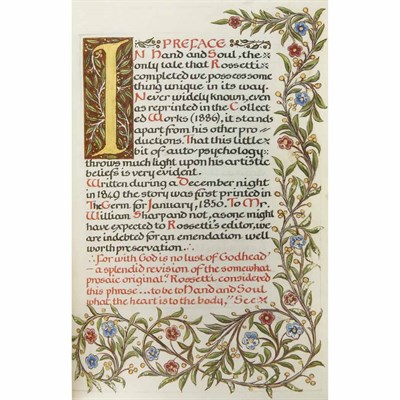 PREFACE
IN Hand and Soul, the
only tale that Rossetti
completed we possess some
thing unique in its way.
Never widely known, even
as reprinted in the Collect
ed Works (1886), it stands
apart from his other pro
ductions. That this little
bit of auto-psychology
throws much light upon his artistic
beliefs is very evident.
Written during a December night
in 1849 the story was first printed in
The Germ for January, 1850. To Mr.
William Sharp and not, as one might
have expected to Rossetti's editor, we
are indebted for an emendation well
worth preservation.
"For with God is no lust of Godhead"
- a splendid revision of the somewhat
prosaic original. Rossetti considered
this phrase ... to be to Hand and Soul
what the heart is to the body," See